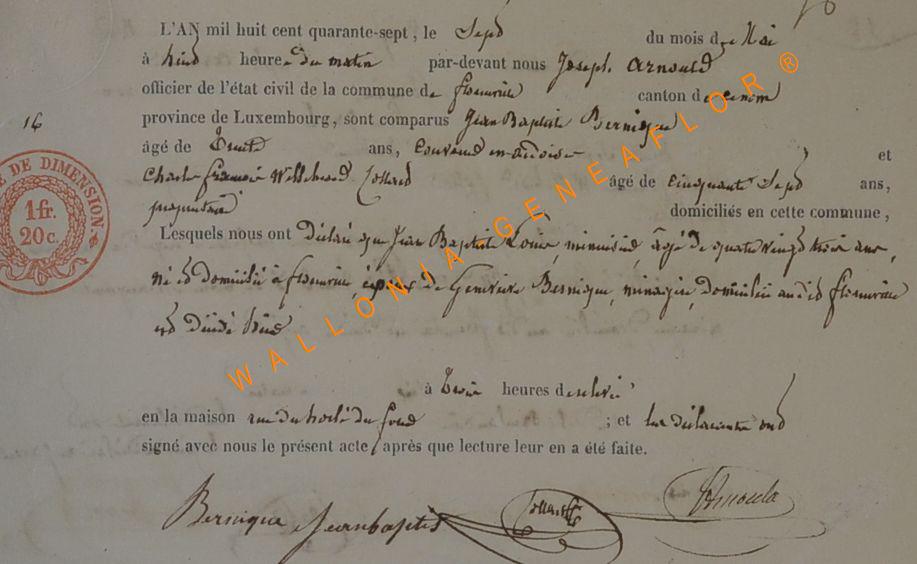 L'AN mil huit cent quarante-sept, le Sept du mois de Mai
à huit heures du matin par-devant nous Joseph Arnould
officier de l'état civil de la commune de florenville canton de
province de Luxembourg, sont comparus Jean Baptiste Bernique
16
âgé de trente ans, couvreur en ardoise et
Charles françois Willebrord Collard âgé de cinquante Sept ans,
propriétaire domiciliés en cette commune,
Lesquels nous ont déclaré que Jean Baptiste Louis, menuisier, âgé de quatre vingt trois ans,
né et domicilié à florenville, époux de Geneviève Bernique, ménagère, domiciliée audit florenville
est décédé hier
à trois heures de relevée
en la maison rue du du fond ; et les déclarants ont
signé avec nous le présent acte, après que lecture leur en a été faite.
Bernique Jeanbaptis Collard Arnould
DE DIMENSION.
1 fr.
20 c.
WALLONIA GENEAFLOR ®